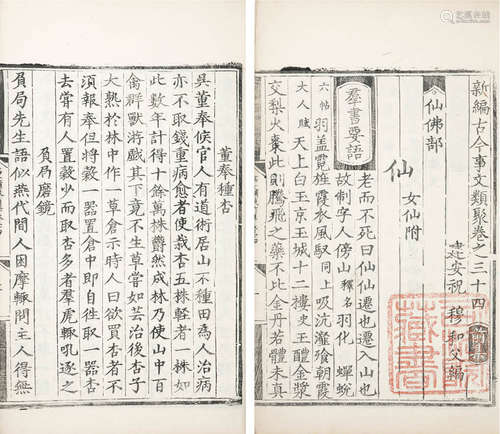 新編古今事文類聚卷之三十四
建安祝 穆 和父 編
仙佛部
仙 女仙附
羣書要語 老而不死曰仙仙遷也遷入山也
故制字人傍山 釋名 羽化 蟬蛻
六帖 羽盖霓旌霞衣風馭 同上 吸沆瀣飱朝霞
大人賦 天上白玉京玉城十二樓 史 玉醴金漿
交梨火棗此則騰飛之藥不比金丹若體未真
董奉種杏
吳董奉候官人有道術居山不種田為人治病
亦不取錢重病愈者使栽杏五株輕者一株如
此數年計得十餘萬株欝然成林乃使山中百
禽群獸將戲其下竟不生草嘗如芸治後杏子
大熟於林中作一草倉示時人曰欲買杏者不
須報奉但將穀一器置倉中即自徃取一器杏
去嘗有人置穀少而取杏多者羣虎輒吼逐之
負局磨鏡
負局先生語似燕代間人因摩輒問主人得無
藏書